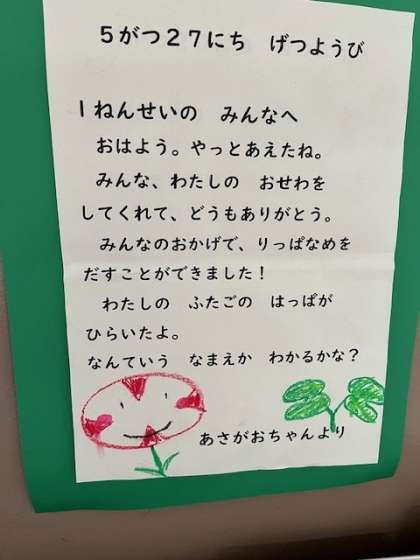 ５がつ２７にち　げつようび
１ねんせいの　みんなへ
おはよう。やっとあえたね。
みんな、わたしの　おせわを
してくれて、どうもありがとう。
みんなのおかげで、りっぱなめを
だすことができました！
わたしの　ふたごの　はっぱが
ひらいたよ。
なんていう　なまえか　わかるかな？
あさがおちゃんより